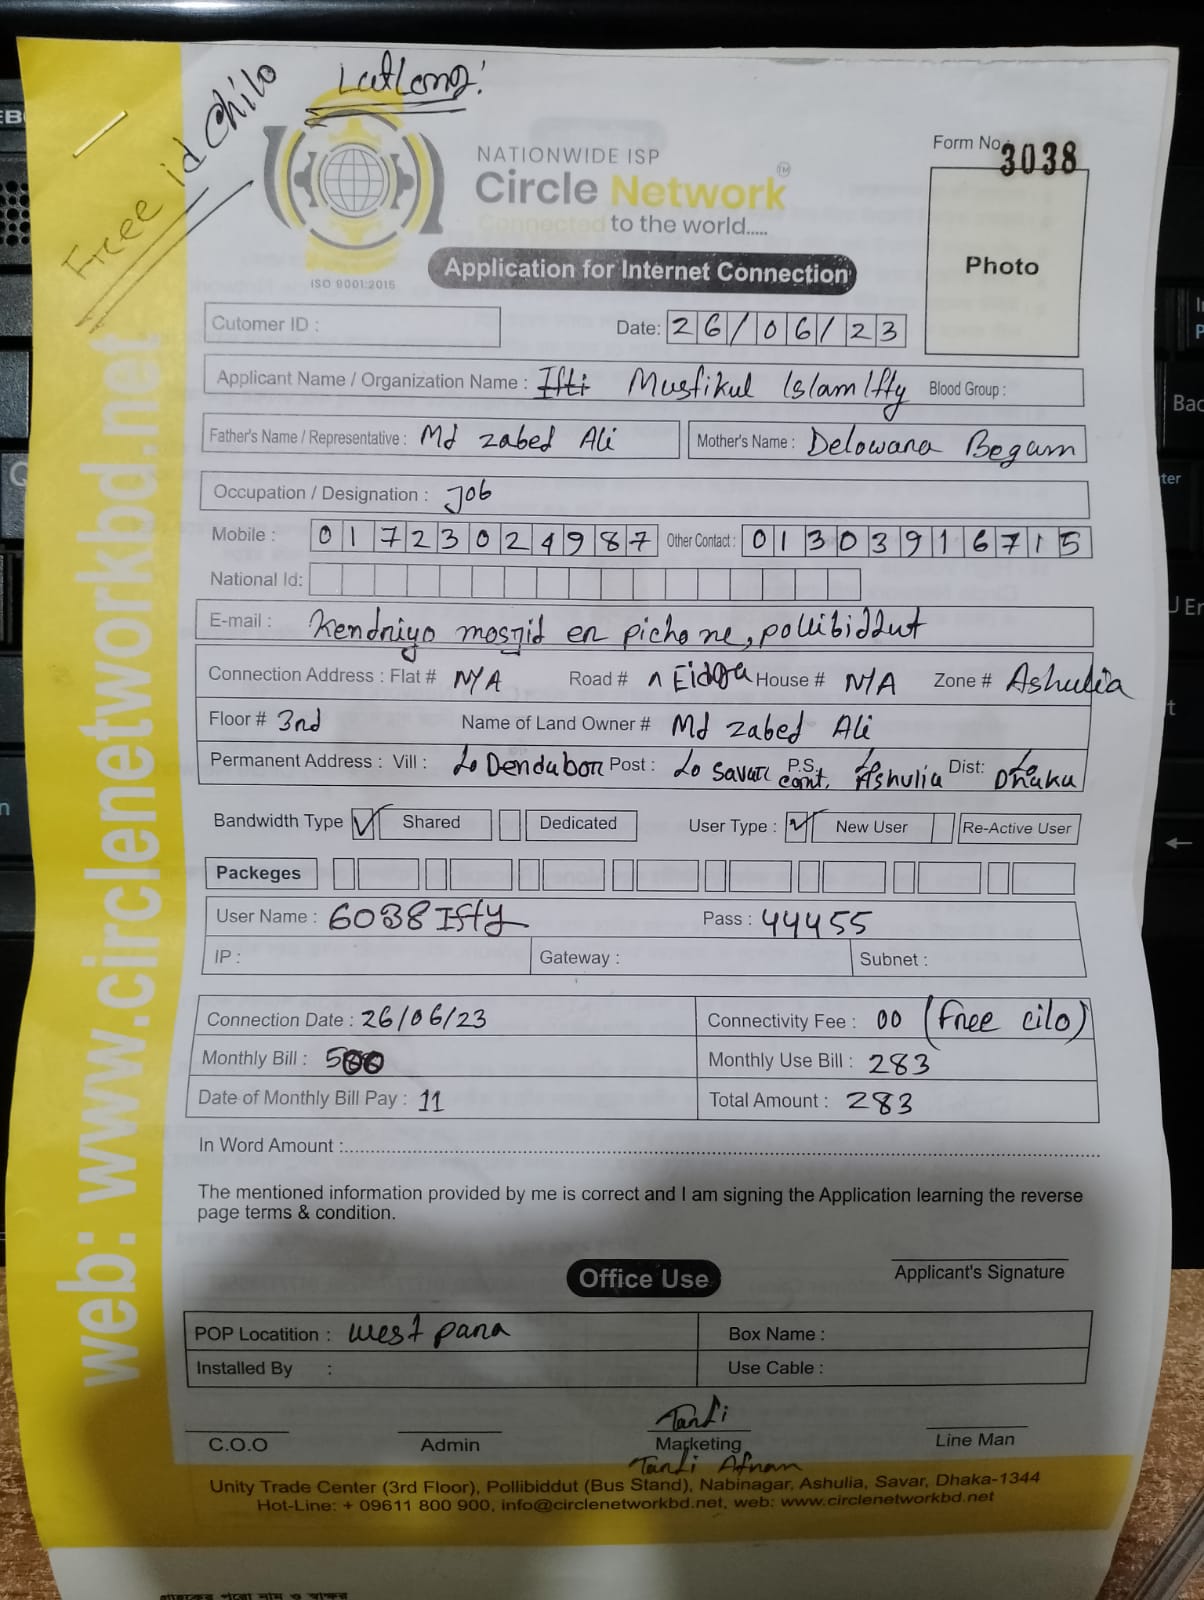 Free id Chilo
LatLong:
NATIONWIDE ISP
Circle Network
TM
Connected to the world.....
ISO 9001:2015
Form No. 3038
Photo
Application for Internet Connection
Cutomer ID :
Date: 26/06/23
Applicant Name / Organization Name : Ifti Musfikul Islam Ifty Blood Group :
Father's Name / Representative : Md zabed Ali Mother's Name : Delowara Begam
Occupation / Designation : Job
Mobile : 01723024987 Other Contact : 01303916715
National Id:
E-mail : Kendriyo mosjid er pichone, pollibiddut
Connection Address : Flat # N/A Road # Eidga House # N/A Zone # Ashulia
Floor # 3rd Name of Land Owner # Md zabed Ali
Permanent Address : Vill : Dendabor Post : Savar P.S. cant. Ashulia Dist: Dhaka
Bandwidth Type Shared Dedicated User Type : New User Re-Active User
Packeges
User Name : 6038Ifty Pass : 44455
IP : Gateway : Subnet :
Connection Date : 26/06/23 Connectivity Fee : 00 (Free cilo)
Monthly Bill : 500 Monthly Use Bill : 283
Date of Monthly Bill Pay : 11 Total Amount : 283
In Word Amount :
The mentioned information provided by me is correct and I am signing the Application learning the reverse
page terms & condition.
Applicant's Signature
Office Use
POP Locatition : west para Box Name :
Installed By : Use Cable :
C.O.O Admin Marketing Line Man
Unity Trade Center (3rd Floor), Pollibiddut (Bus Stand), Nabinagar, Ashulia, Savar, Dhaka-1344
Hot-Line: + 09611 800 900, info@circlenetworkbd.net, web: www.circlenetworkbd.net
web: www.circlenetworkbd.net